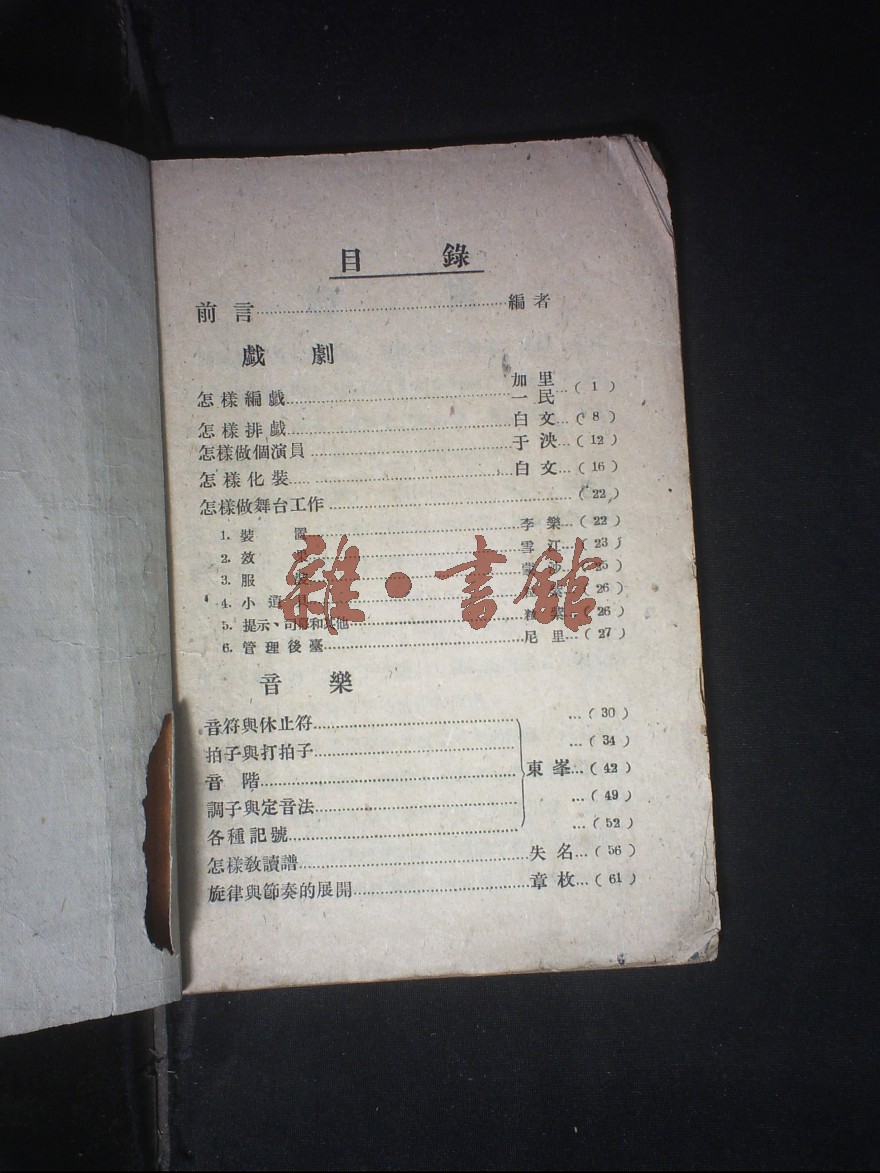 目 錄
前言……編者
戲劇
怎樣編戲……加里 一民…( 1 )
怎樣排戲……白文…( 8 )
怎樣做個演員……于泱…(12)
怎樣化裝……白文…(16)
怎樣做舞台工作……(22)
1. 裝置……李樂…(22)
2. 效……雪汀…(23)
3. 服……(25)
4. 小道具……(26)
5. 提示、司幕和其他……(26)
6. 管理後臺……尼里…(27)
音樂
音符與休止符……(30)
拍子與打拍子……(34)
音階……東峯…(42)
調子與定音法……(49)
各種記號……(52)
怎樣教讀譜……失名…(56)
旋律與節奏的展開……章枚…(61)
雜·書館